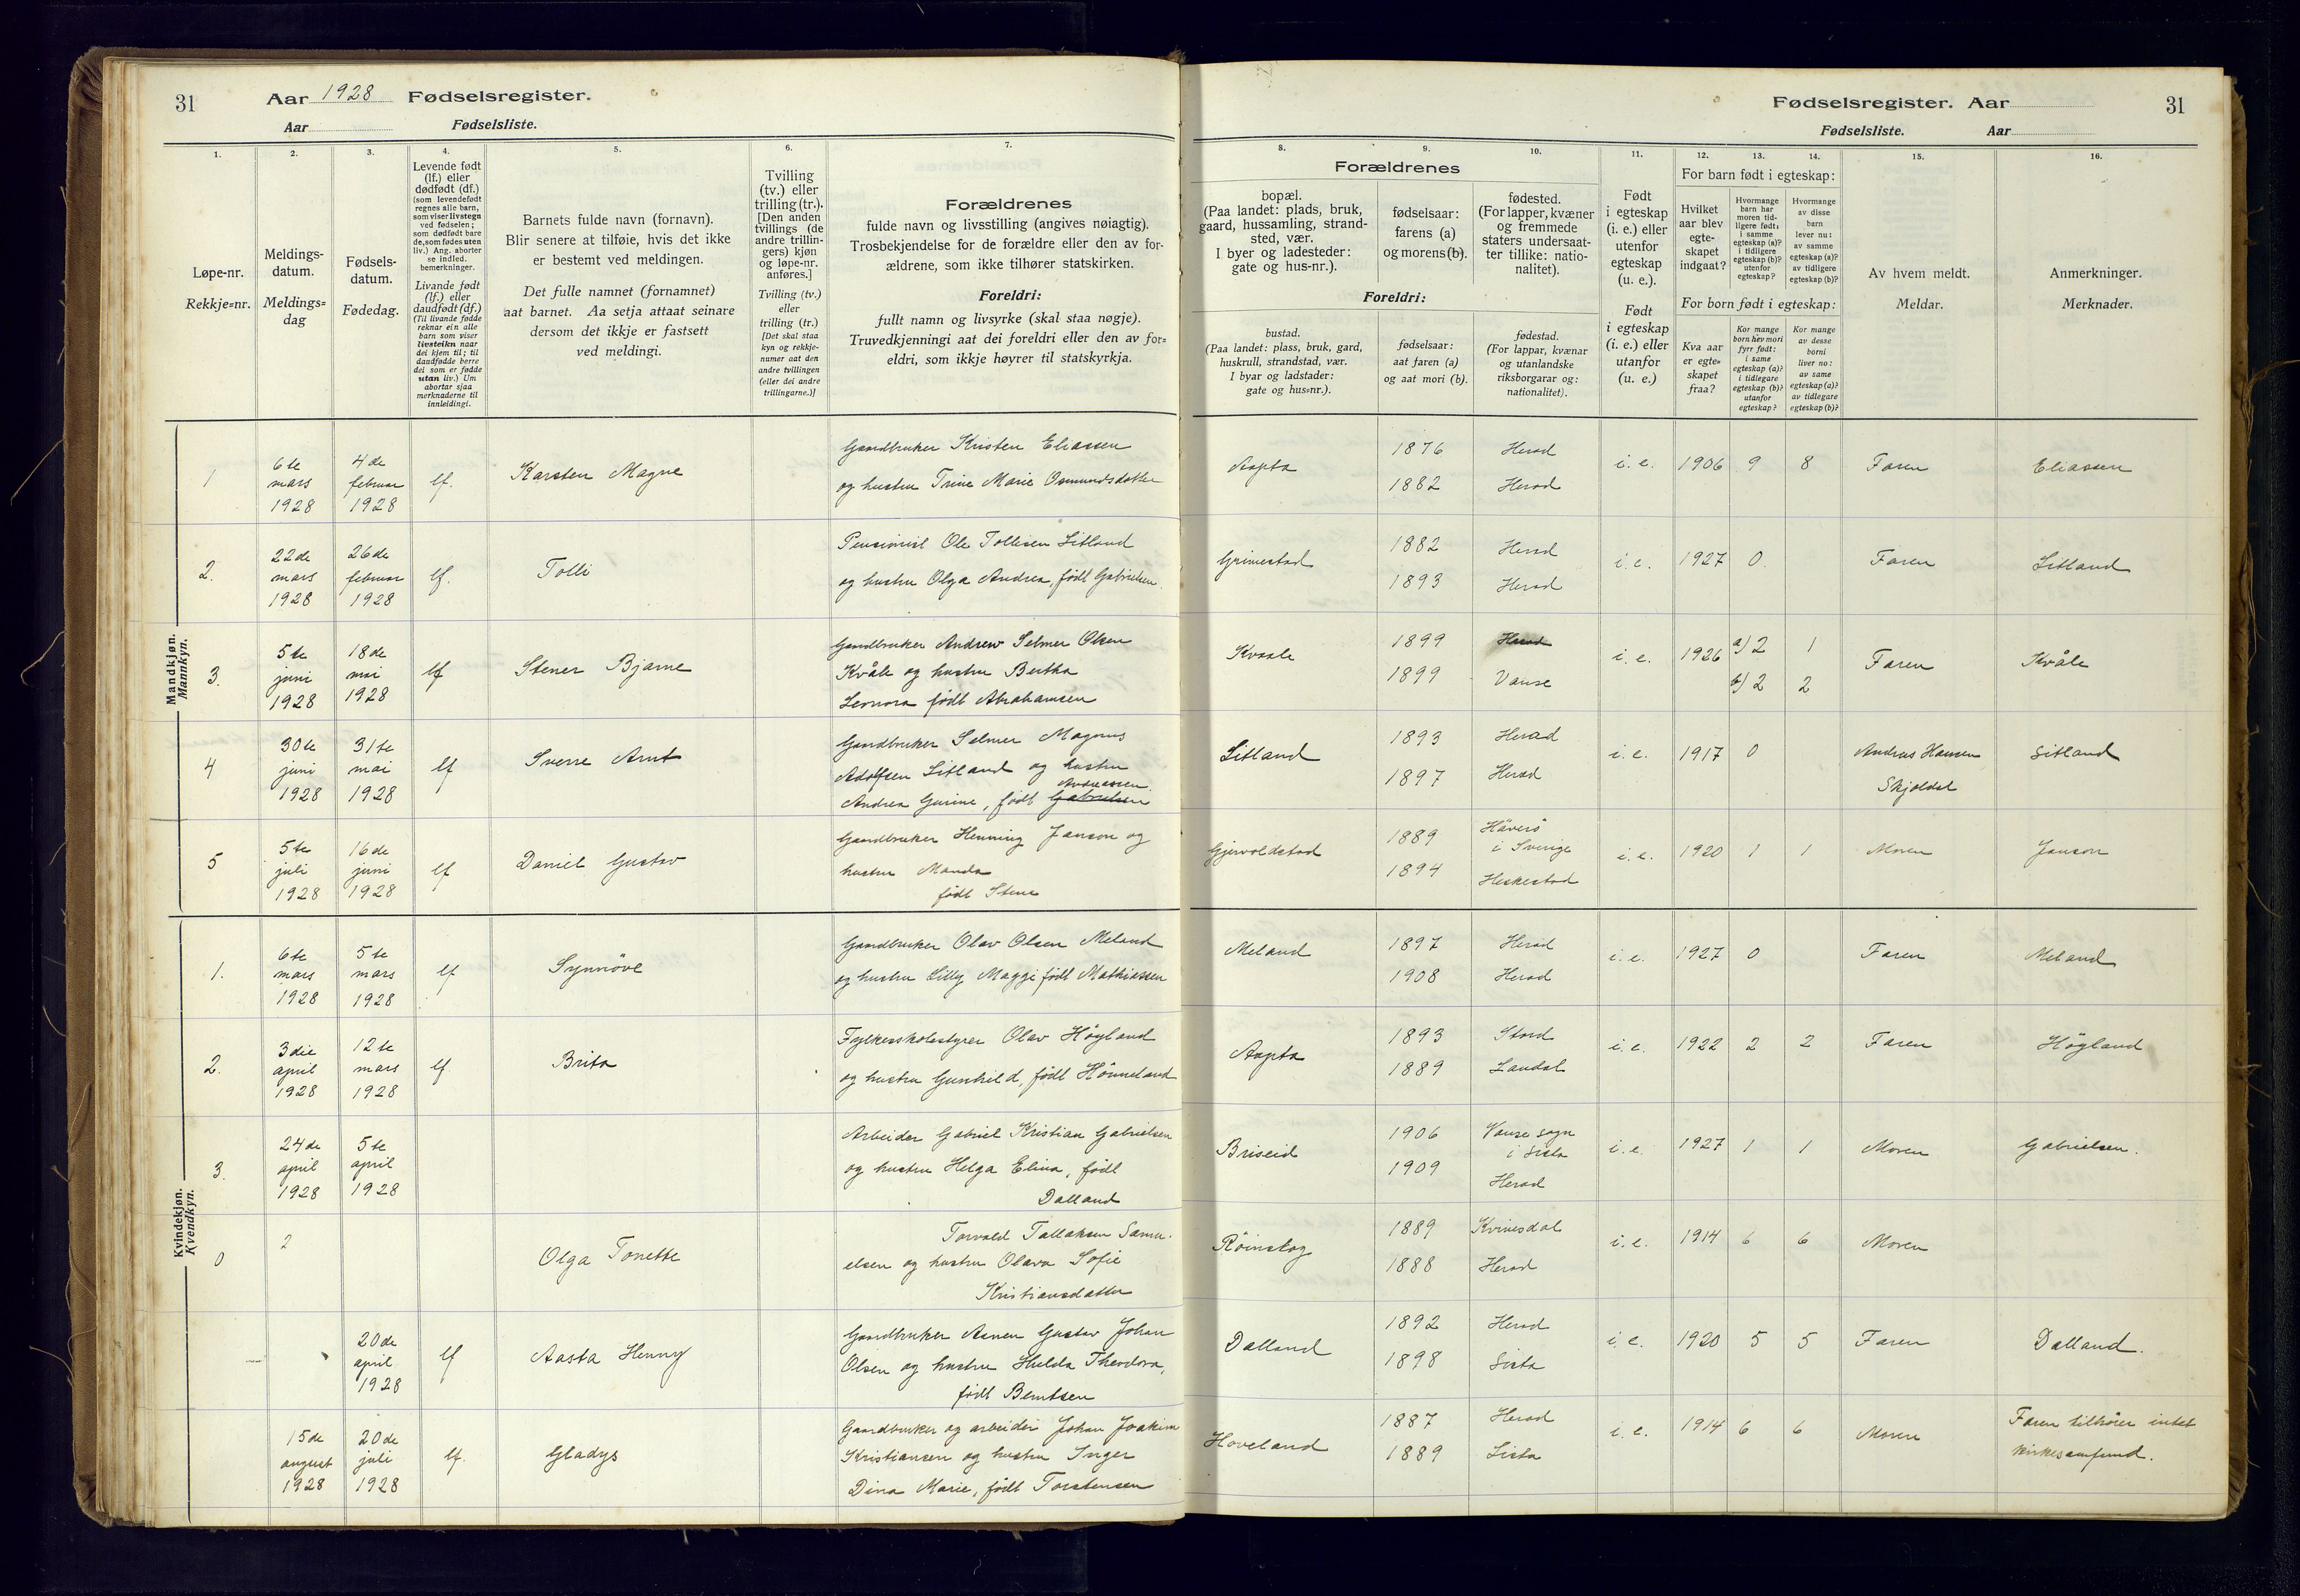 31
Aar 1928 Fødselsregister.
Aar Fødselsliste.
1.
2.
3.
4.
5.
6.
7.
Løpe-nr.
Rekkje=nr.
Meldings-
datum.
Meldings=
dag
Fødsels-
datum.
Fødedag.
Levende født
(lf.) eller
dødfødt (df.)
(som levendefødt
regnes alle barn,
som viser livstegn
ved fødselen;
som dødfødt bare
de, som fødes uten
liv.) Ang. aborter
se indled.
bemerkninger.
Livande født
(lf.) eller
daudfødt (df.)
(Til livande fødde
reknar ein alle
barn som viser
livsteikn naar
dei kjem til; til
daudfødde berre
dei som er fødde
utan liv.) Um
abortar sjaa
merknaderne til
innleidingi.
Barnets fulde navn (fornavn).
Blir senere at tilføie, hvis det ikke
er bestemt ved meldingen.
Det fulle namnet (fornamnet)
aat barnet. Aa setja attaat seinare
dersom det ikkje er fastsett
ved meldingi.
Tvilling
(tv.) eller
trilling (tr.).
[Den anden
tvillings (de
andre trillin-
gers) kjøn
og løpe-nr.
anføres.]
Tvilling (tv.)
eller
trilling (tr.)
[Det skal staa
kyn og rekkje-
numer aat den
andre tvillingen
(eller dei andre
trillingarne.)]
Forældrenes
fulde navn og livsstilling (angives nøiagtig).
Trosbekjendelse for de forældre eller den av for-
ældrene, som ikke tilhører statskirken.
Foreldri:
fullt namn og livsyrke (skal staa nøgje).
Truvedkjenningi aat dei foreldri eller den av for=
eldri, som ikkje høyrer til statskyrkja.
Mandkjøn.
Mannkyn.
1
6te
mars
1928
4de
februar
1928
lf.
Karsten Magne
Gaardbruker Kristen Eliassen
og hustru Trine Marie Osmundsdatter
2.
22de
mars
1928
26de
februar
1928
lf.
Tolli
Pensionist Ole Tollisen Litland
og hustru Olga Andrea, født Gabrielsen.
3.
5te
juni
1928
18de
mai
1928
lf
Stener Bjarne
Gaardbruker Andrew Selmer Olsen
Kvåle og hustru Bertha
Leonora født Abrahamsen
4
30te
juni
1928
31te
mai
1928
lf
Sverre Arnt
Gaardbruker Selmer Magnus
Adolfsen Litland og hustru
Andreassen.
Andrea Gurine, født Gabrielsen
5
5te
juli
1928
16de
juni
1928
lf
Daniel Gustav
Gaardbruker Henning Janson og
hustru Manda
født Stene
Kvindekjøn.
Kvendkyn.
1.
6te
mars
1928
5te
mars
1928
lf
Synnöve
Gaardbruker Olav Olsen Meland
og hustru Lilly Maggi født Mathiassen
2.
3die
april
1928
12te
mars
1928
lf.
Brita
Fylkesskolestyrer Olav Högland
og hustru Gunhild, født Hönneland
3.
24de
april
1928
5te
april
1928
Arbeider Gabriel Kristian Gabrielsen
og hustru Helga Elina, født
Dalland
0
2
Olga Tonette
Torvald Tallaksen Samu-
elsen og hustru Olava Sofie
Kristiansdatter
20de
april
1928
lf
Aasta Henny
Gaardbruker Asmen Gustav Johan
Olsen og hustru Hulda Theodora,
født Berntsen
15de
august
1928
20de
juli
1928
lf.
Gladys
Gaardbruker og arbeider Johan Joakim
Kristiansen og hustru Inger
Dina Marie, født Torstensen
Fødselsregister. Aar
31
Fødselsliste. Aar
8.
9.
10.
11.
12.
13.
14.
15.
16.
Forældrenes
bopæl.
(Paa landet: plads, bruk,
gaard, hussamling, strand-
sted, vær.
I byer og ladesteder:
gate og hus-nr.).
fødselsaar:
farens (a)
og morens (b).
fødested.
(For lapper, kvæner
og fremmede
staters undersaat-
ter tillike: natio-
nalitet).
Foreldri:
bustad.
(Paa landet: plass, bruk, gard,
huskrull, strandstad, vær.
I byar og ladstader:
gate og hus=nr.).
fødselsaar:
aat faren (a)
og aat mori (b).
fødestad.
(For lappar, kvænar
og utanlandske
riksborgarar og:
nationalitet).
Født
i egteskap
(i. e.) eller
utenfor
egteskap
(u. e.).
Født
i egteskap
(i. e.) eller
utanfor
(u. e.)
For barn født i egteskap:
Hvilket
aar blev
egte-
skapet
indgaat?
Hvormange
barn har
moren tid-
ligere født:
i samme
egteskap (a)?
i tidligere
egteskap (b)?
utenfor
egteskap?
Hvormange
av disse
barn
lever nu:
av samme
egteskap (a)?
av tidligere
egteskap (b)?
For born født i egteskap:
Kva aar
er egte=
skapet
fraa?
Kor mange
born hev mori
fyrr født:
i same
egteskap (a)?
i tidlegare
egteskap (b)?
utanfor
egteskap?
Kor mange
av desse
borni
liver no:
av same
egteskap (a)?
av tidlegare
egteskap (b)?
Av hvem meldt.
Meldar.
Anmerkninger.
Merknader.
Aapta
1876
1882
Herad
Herad
i. e.
1906
9
8
Faren
Eliassen
Grimestad
1882
1893
Herad
Herad
i. e.
1927
0.
Faren
Litland
Kvaale
1899
1899
Herad
Vanse
i. e.
1926
a) 2
1
b) 2
2
Faren
Kvåle
Litland
1893
1897
Herad
Herad
i. e.
1917
0
Andreas Hansen
Skjoldal
Litland
Gjervoldstad
1889
1894
Häverö
i Sverige
Heskestad
i. e.
1920
1
1
Moren
Janson
Meland
1897
1908
Herad
Herad
i. e.
1927
0
Faren
Meland
Aapta
1893
1889
Stord
Laudal
i. e.
1922
2
2
Faren
Högland
Briseid
1906
1909
Vanse sogn
i Lista
Herad
i. e.
1927
1
1
Moren
Gabrielsen.
Röinskog
1889
1888
Kvinesdal
Herad
i. e.
1914
6
6
Moren
Dalland
1892
1898
Herad
Lista
i. e.
1920
5
5
Faren
Dalland.
Hoveland
1887
1889
Herad
Lista
i. e.
1914
6
6
Moren
Faren tilhører intet
kirkesamfund.